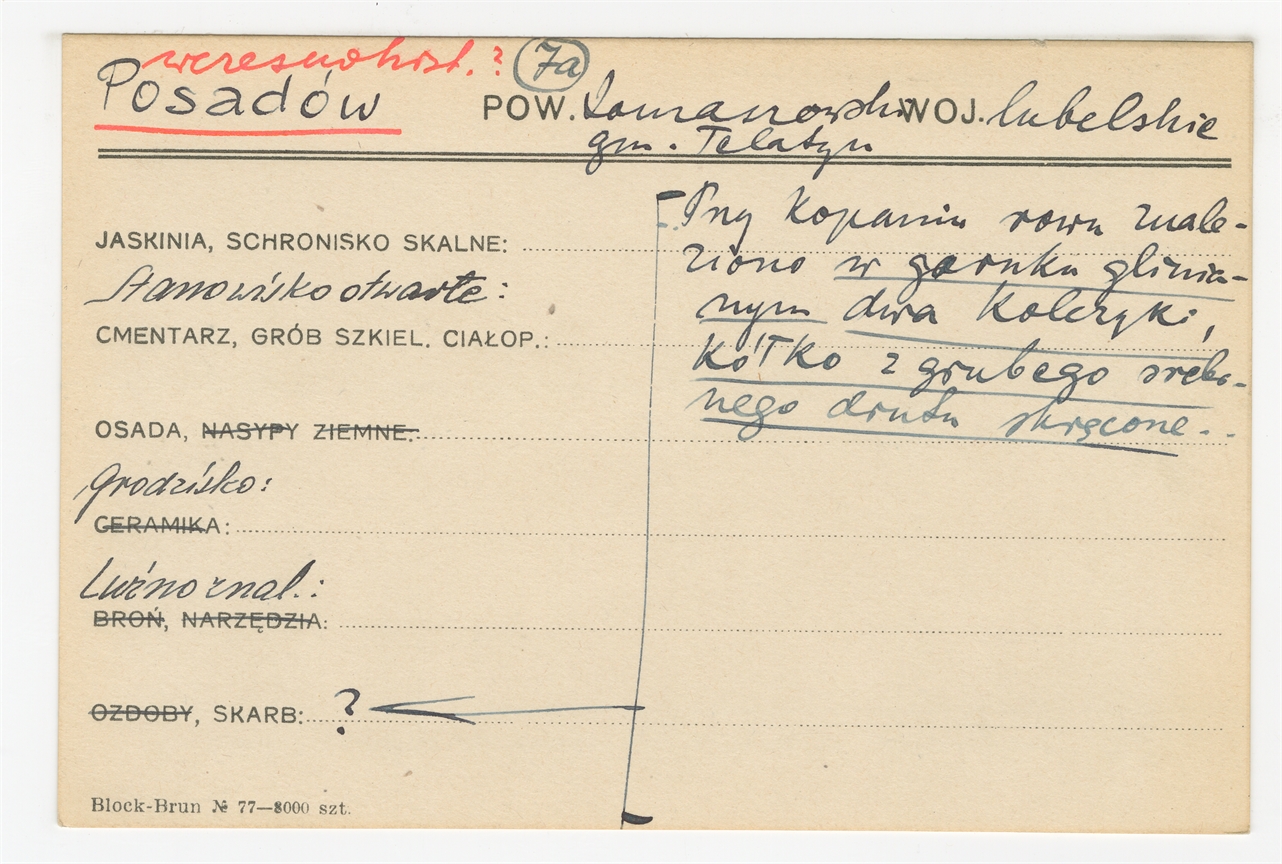 wczesnohist. ? 7a
Posadów POW. Tomaszowski WOJ. lubelskie
gm. Telatyn
JASKINIA, SCHRONISKO SKALNE:
Stanowisko otwarte:
CMENTARZ, GRÓB SZKIEL. CIAŁOP.:
OSADA, NASYPY ZIEMNE:
Grodzisko:
CERAMIKA:
Luźno znal.:
BROŃ, NARZĘDZIA:
OZDOBY, SKARB: ?
Przy kopaniu rowu znale-
ziono w garnku glinia-
nym dwa kolczyki,
kółko z grubego srebr-
nego drutu skręcone.
Block-Brun № 77—8000 szt.